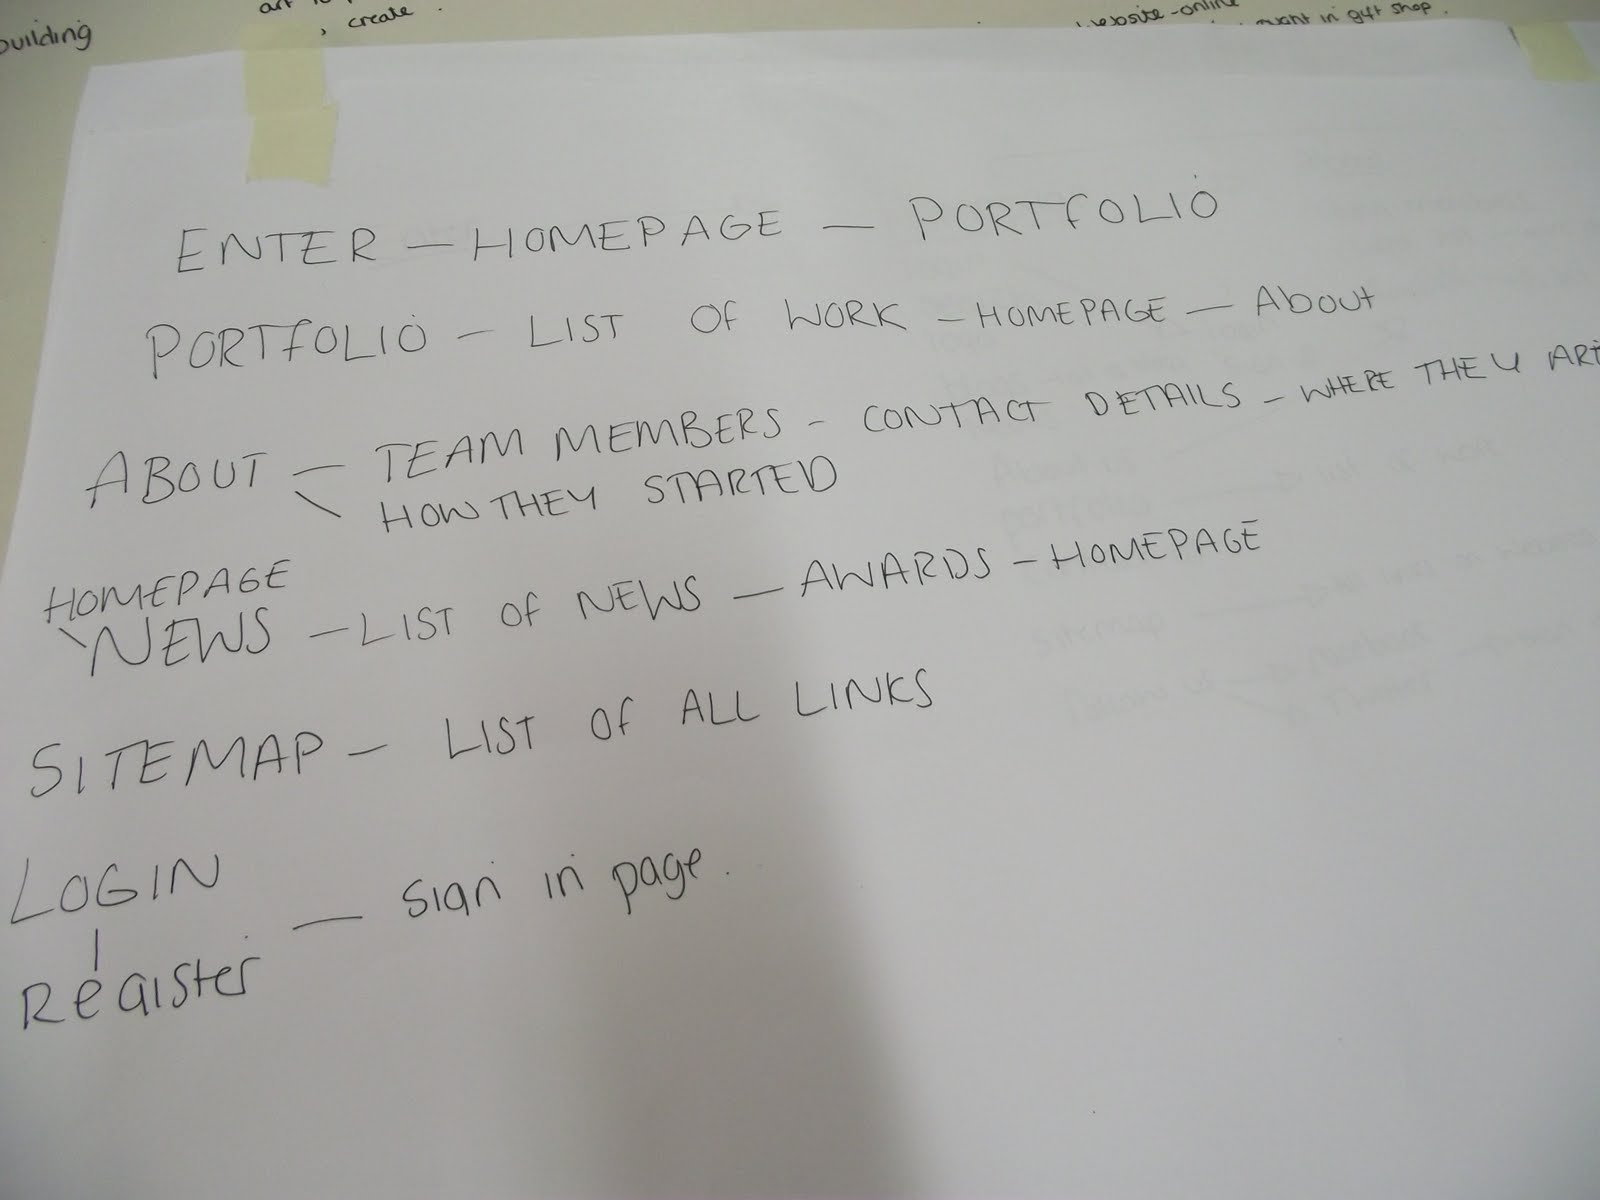 building
create.
website - online
want in gift shop.
ENTER — HOMEPAGE — PORTFOLIO
PORTFOLIO — LIST OF WORK — HOMEPAGE — About
ABOUT — TEAM MEMBERS - CONTACT DETAILS - WHERE THEY ARE
HOW THEY STARTED
HOMEPAGE
NEWS — LIST OF NEWS — AWARDS - HOMEPAGE
SITEMAP — LIST OF ALL LINKS
LOGIN
— Sign in page.
Register